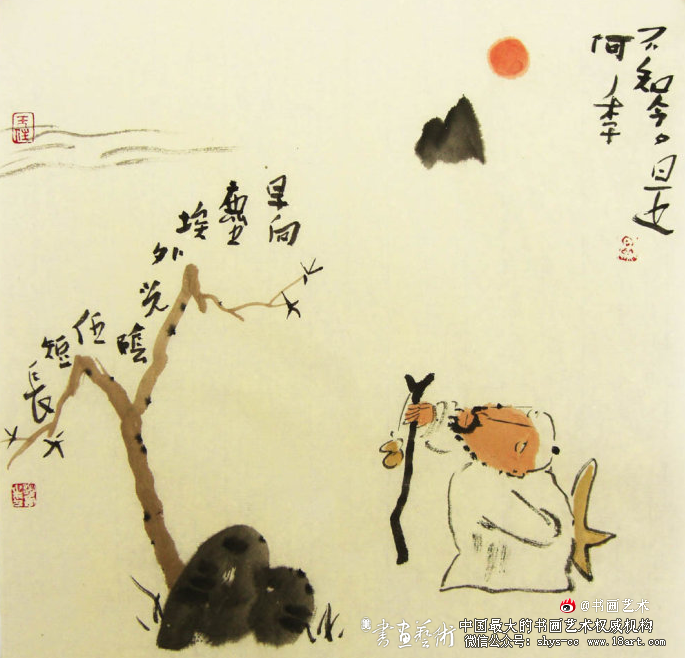 不知今夕是
何年
早向塵埃外光陰任短長
@书画艺术
書畫藝術
中国最大的书画艺术权威机构
微信公众号：shys-cc www.18art.com